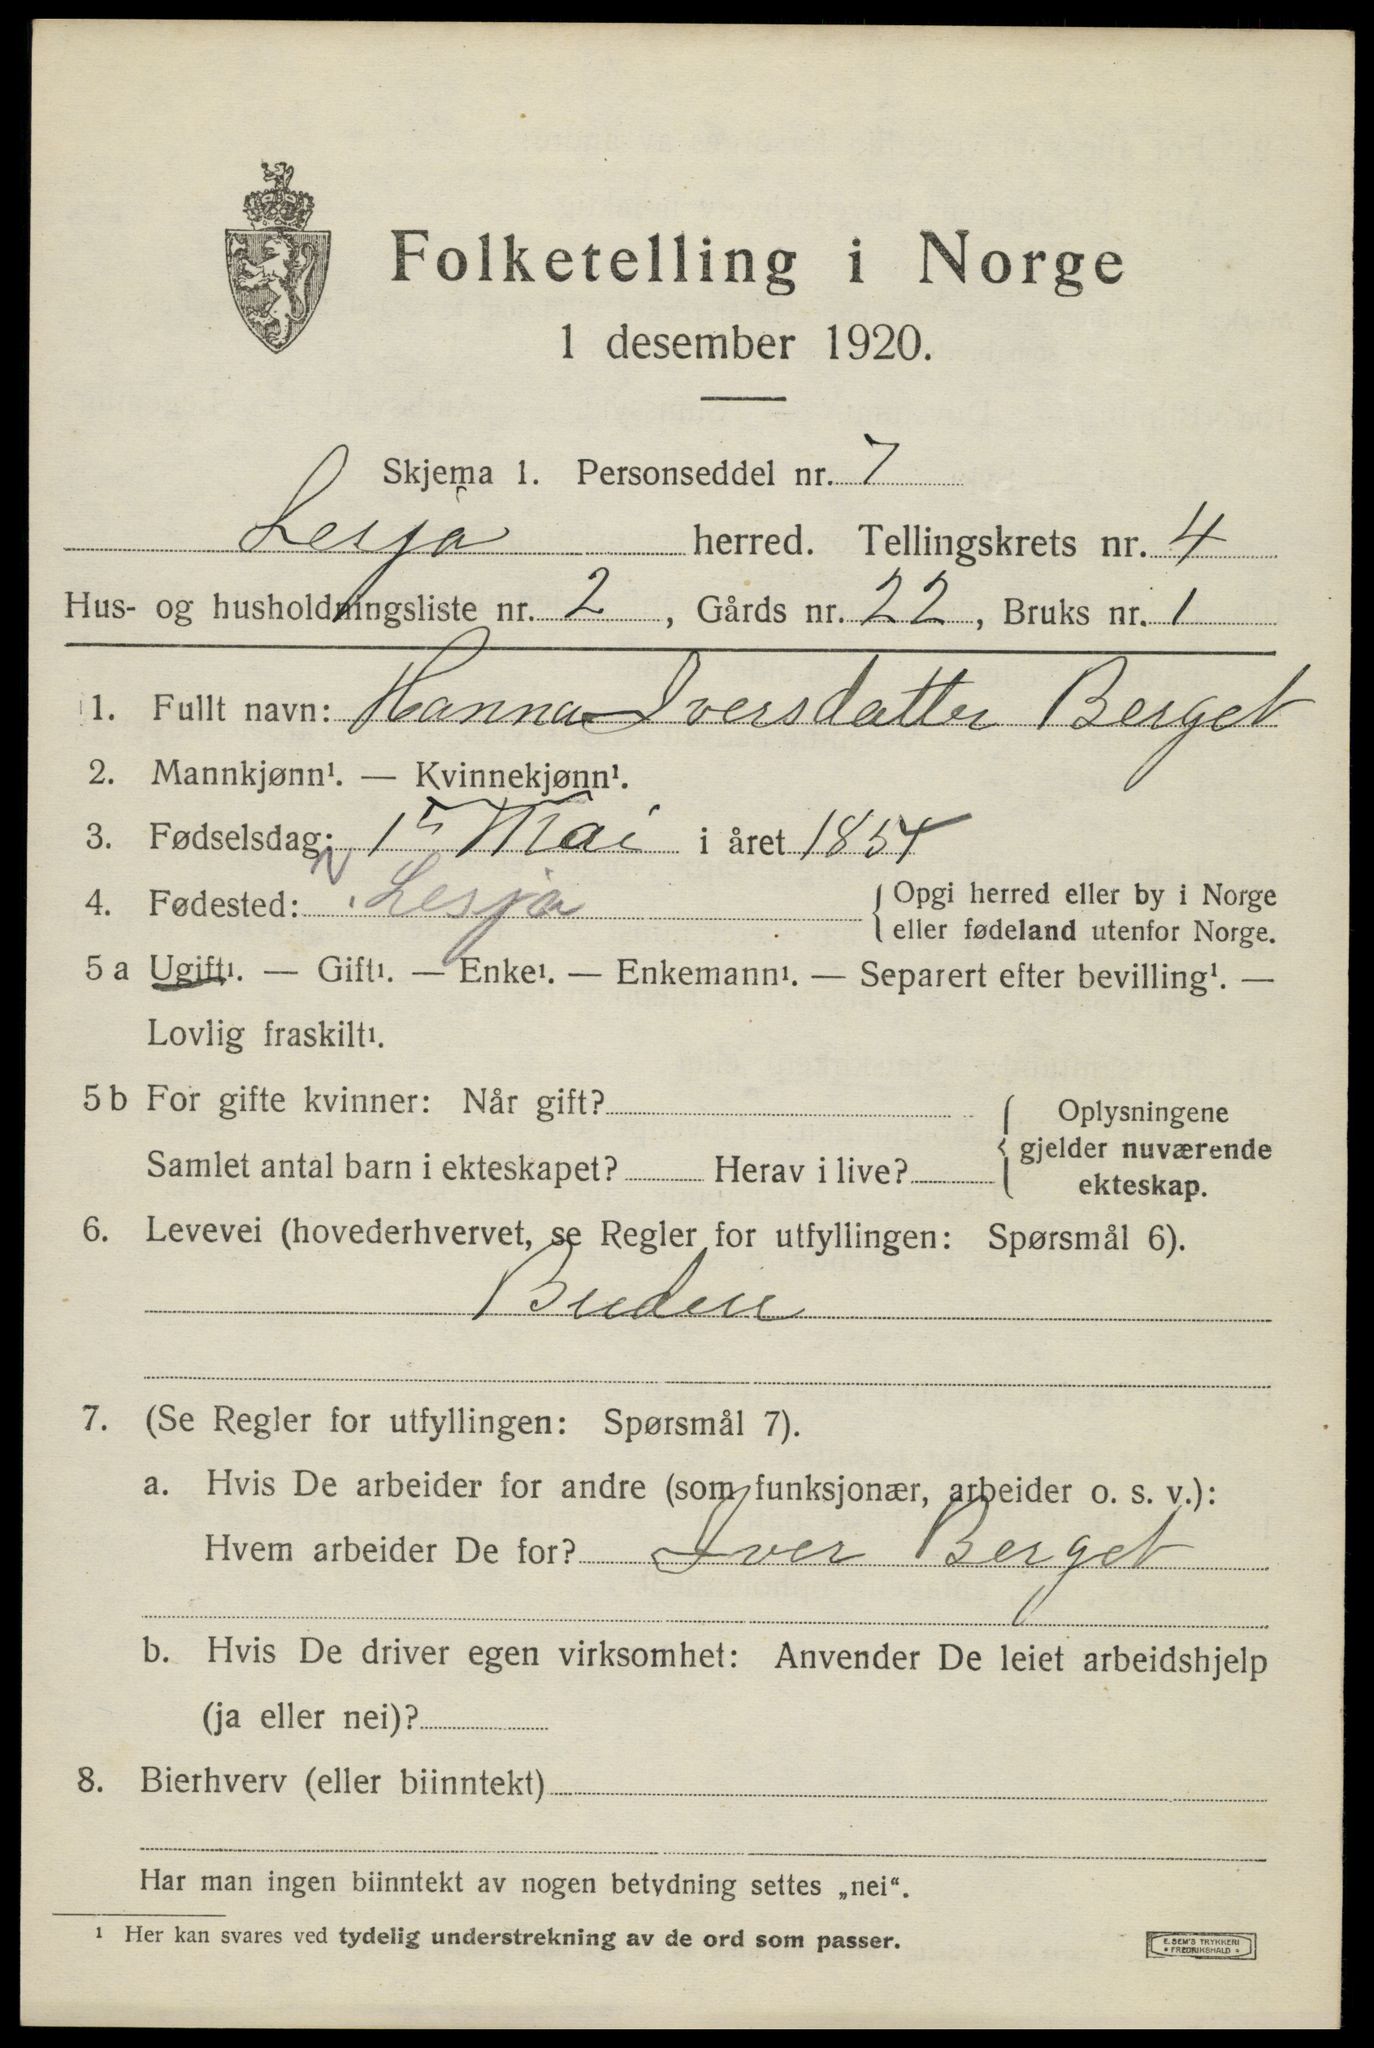 Folketelling i Norge
1 desember 1920.
Skjema 1. Personseddel nr. 7
Lesja herred. Tellingskrets nr. 4
Hus- og husholdningsliste nr. 2, Gårds nr. 22, Bruks nr. 1
1. Fullt navn: Hanna Iversdatter Berget
2. Mannkjønn¹. — Kvinnekjønn¹.
3. Fødselsdag: 15 Mai i året 1854
4. Fødested: N Lesja { Opgi herred eller by i Norge
eller fødeland utenfor Norge.
5 a Ugift¹. — Gift¹. — Enke¹. — Enkemann¹. — Separert efter bevilling¹. —
Lovlig fraskilt¹.
5 b For gifte kvinner: Når gift? { Oplysningene
gjelder nuværende
Samlet antal barn i ekteskapet? Herav i live?
ekteskap.
6. Levevei (hovederhvervet, se Regler for utfyllingen: Spørsmål 6).
Budeie
7. (Se Regler for utfyllingen: Spørsmål 7).
a. Hvis De arbeider for andre (som funksjonær, arbeider o. s. v.):
Hvem arbeider De for? Iver Berget
b. Hvis De driver egen virksomhet: Anvender De leiet arbeidshjelp
(ja eller nei)?
8. Bierhverv (eller biinntekt)
Har man ingen biinntekt av nogen betydning settes „nei“.
¹ Her kan svares ved tydelig understrekning av de ord som passer.
E. SEM'S TRYKKERI
* FREDRIKSHALD *